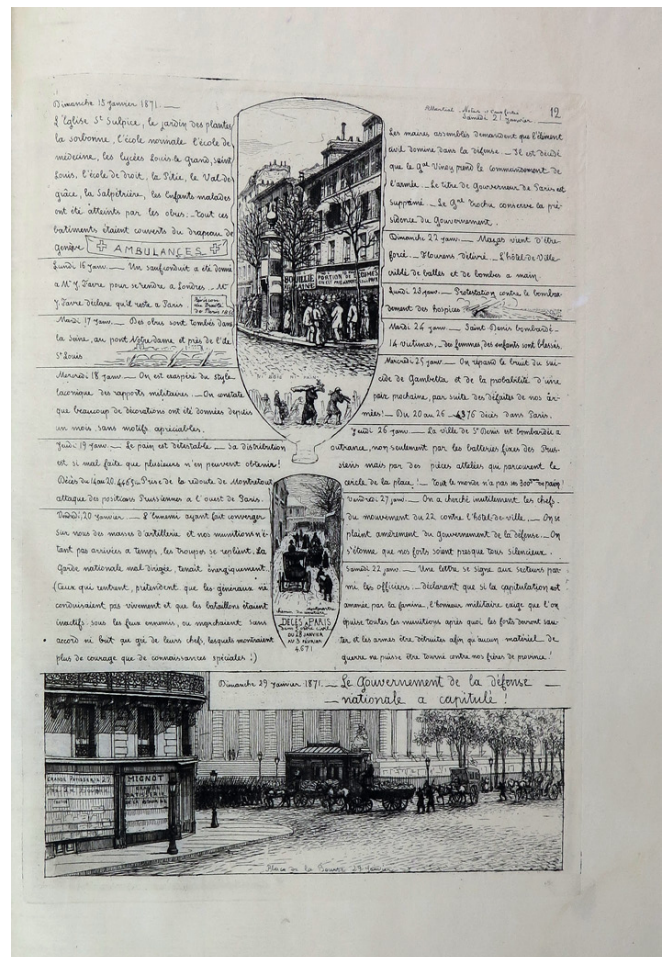 Dimanche 15 Janvier 1871. —
L'Eglise St Sulpice, le jardin des plantes
la Sorbonne, l'école normale l'école de
médecine, les lycées Louis le Grand, saint
Louis, l'école de droit, la Pitié, le Val de
grâce, la Salpêtrière, les Enfants malades
ont été atteints par les obus. — Tout ces
batiments étaient couverts du drapeau de
Genève
AMBULANCES
Lundi 16 Janv. — Un saufconduit a été donné
a Mr J. Favre pour se rendre a Londres. — Mr
J. Favre déclare qu'il reste a Paris
Mardi 17 Janv. — Des obus sont tombés dans
la Seine, au pont Notre-dame et près de l'Ile
St Louis
Mercredi 18 Janv. — On est exaspéré du style
laconique des rapports militaires — On constate
que beaucoup de décorations ont été données depuis
un mois sans motifs, apréciables.
Jeudi 19 Janv. — Le pain est détestable — Sa distribution
est si mal faite que plusieurs n'en peuvent obtenir!
Décès du 14 au 20. 4465 Prise de la redoute de Montretout
attaque des positions Prussiennes a l'ouest de Paris.
Vendredi, 20 Janvier — L'Ennemi ayant fait converger
sur nous des masses d'artillerie et nos munitions n'é-
tant pas arrivées a temps, les troupes se replient. La
Garde nationale mal dirigée, tenait énergiquement.
(Ceux qui rentrent, prétendent que les généraux ne
conduisaient pas vivement et que les bataillons étaient
inactifs sous les feux ennemis, ou marchaient sans
accord ni but au gré de leurs chefs, lesquels montraient
plus de courage que de connaissances spéciales!)
12
Samedi 21 Janvier
Les maires assemblés demandent que l'élément
civil domine dans la défense — Il est décidé
que le Gal Vinoy prend le commandement de
l'armée — Le titre de Gouverneur de Paris est
supprimé — Le Gal Trochu conserve la pré-
sidence du Gouvernement.
Dimanche 22 Janv. — Mazas vient d'être
forcé — Flourens délivré. — L'hôtel de Ville
criblé de balles et de bombes a main.
Lundi 23 Janv. — Protestation contre le bombar-
dement des hospices
Mardi 24 Janv. — Saint Denis bombardé -
16 victimes, — des femmes, des enfants sont blessés.
Mercredi 25 Janv. — On répand le bruit du sui-
cide de Gambetta et de la probabilité d'une
paix prochaine, par suite des défaites de nos ar-
mées! — Du 20 au 26 — 4376 décès dans Paris.
Jeudi 26 Janv. — La ville de St Denis est bombardée a
outrance, non seulement par les batteries fixes des Prus-
siens mais par des pièces attelées qui parcourent le
cercle de la place! — Tout le monde n'a pas ses 300 de pain!
Vendredi 27 Janv. — On a cherché inutilement les chefs
du mouvement du 22 contre l'hôtel de ville. — On se
plaint amèrement du Gouvernement de la défense — On
s'étonne que nos forts soient presque tous silencieux.
Samedi 22 Janv. — Une lettre se signe aux secteurs par-
mi les officiers — déclarant que si la capitulation est
amenée par la famine, l'honneur militaire exige que l'on
épuise toutes les munitions après quoi les forts devront sau-
ter et les armes être détruites afin qu'aucun matériel de
guerre ne puisse être tourné contre nos frères de province!
DÉCÈS à PARIS
DU 28 JANVIER
AU 3 FÉVRIER
4671
Dimanche 29 Janvier 1871. — Le Gouvernement de la défense —
— nationale a capitulé!
MIGNOT
Place de la Bourse 29 Janvier